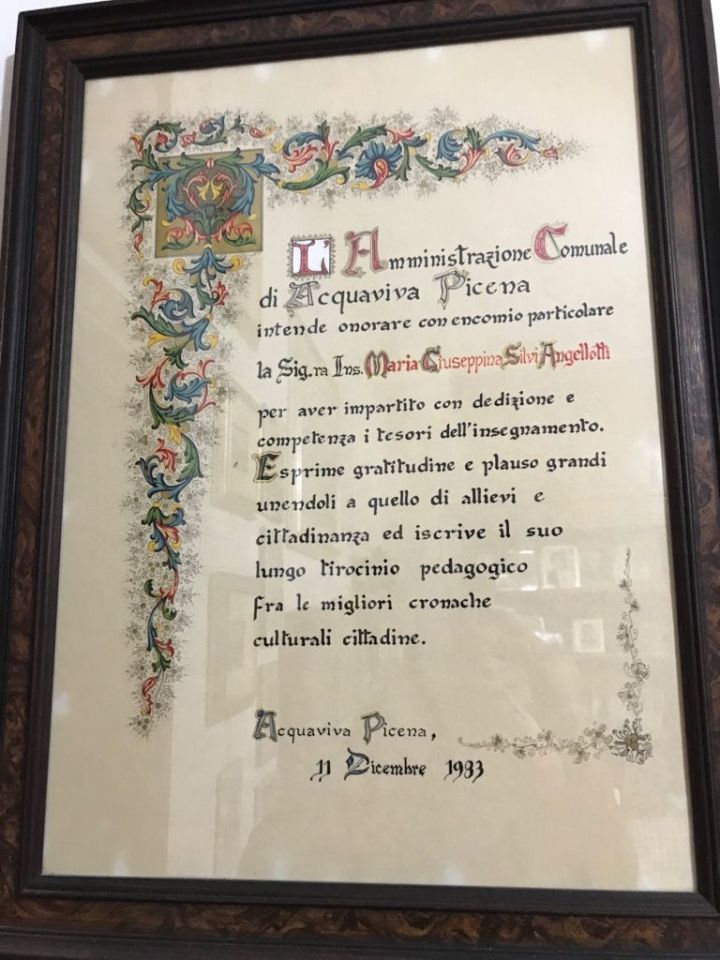 L'Amministrazione Comunale
di Acquaviva Picena
intende onorare con encomio particolare
la Sig.ra Ins. Maria Giuseppina Silvi Angellotti
per aver impartito con dedizione e
competenza i tesori dell'insegnamento.
Esprime gratitudine e plauso grandi
unendoli a quello di allievi e
cittadinanza ed iscrive il suo
lungo tirocinio pedagogico
fra le migliori cronache
culturali cittadine.
Acquaviva Picena,
11 Dicembre 1983